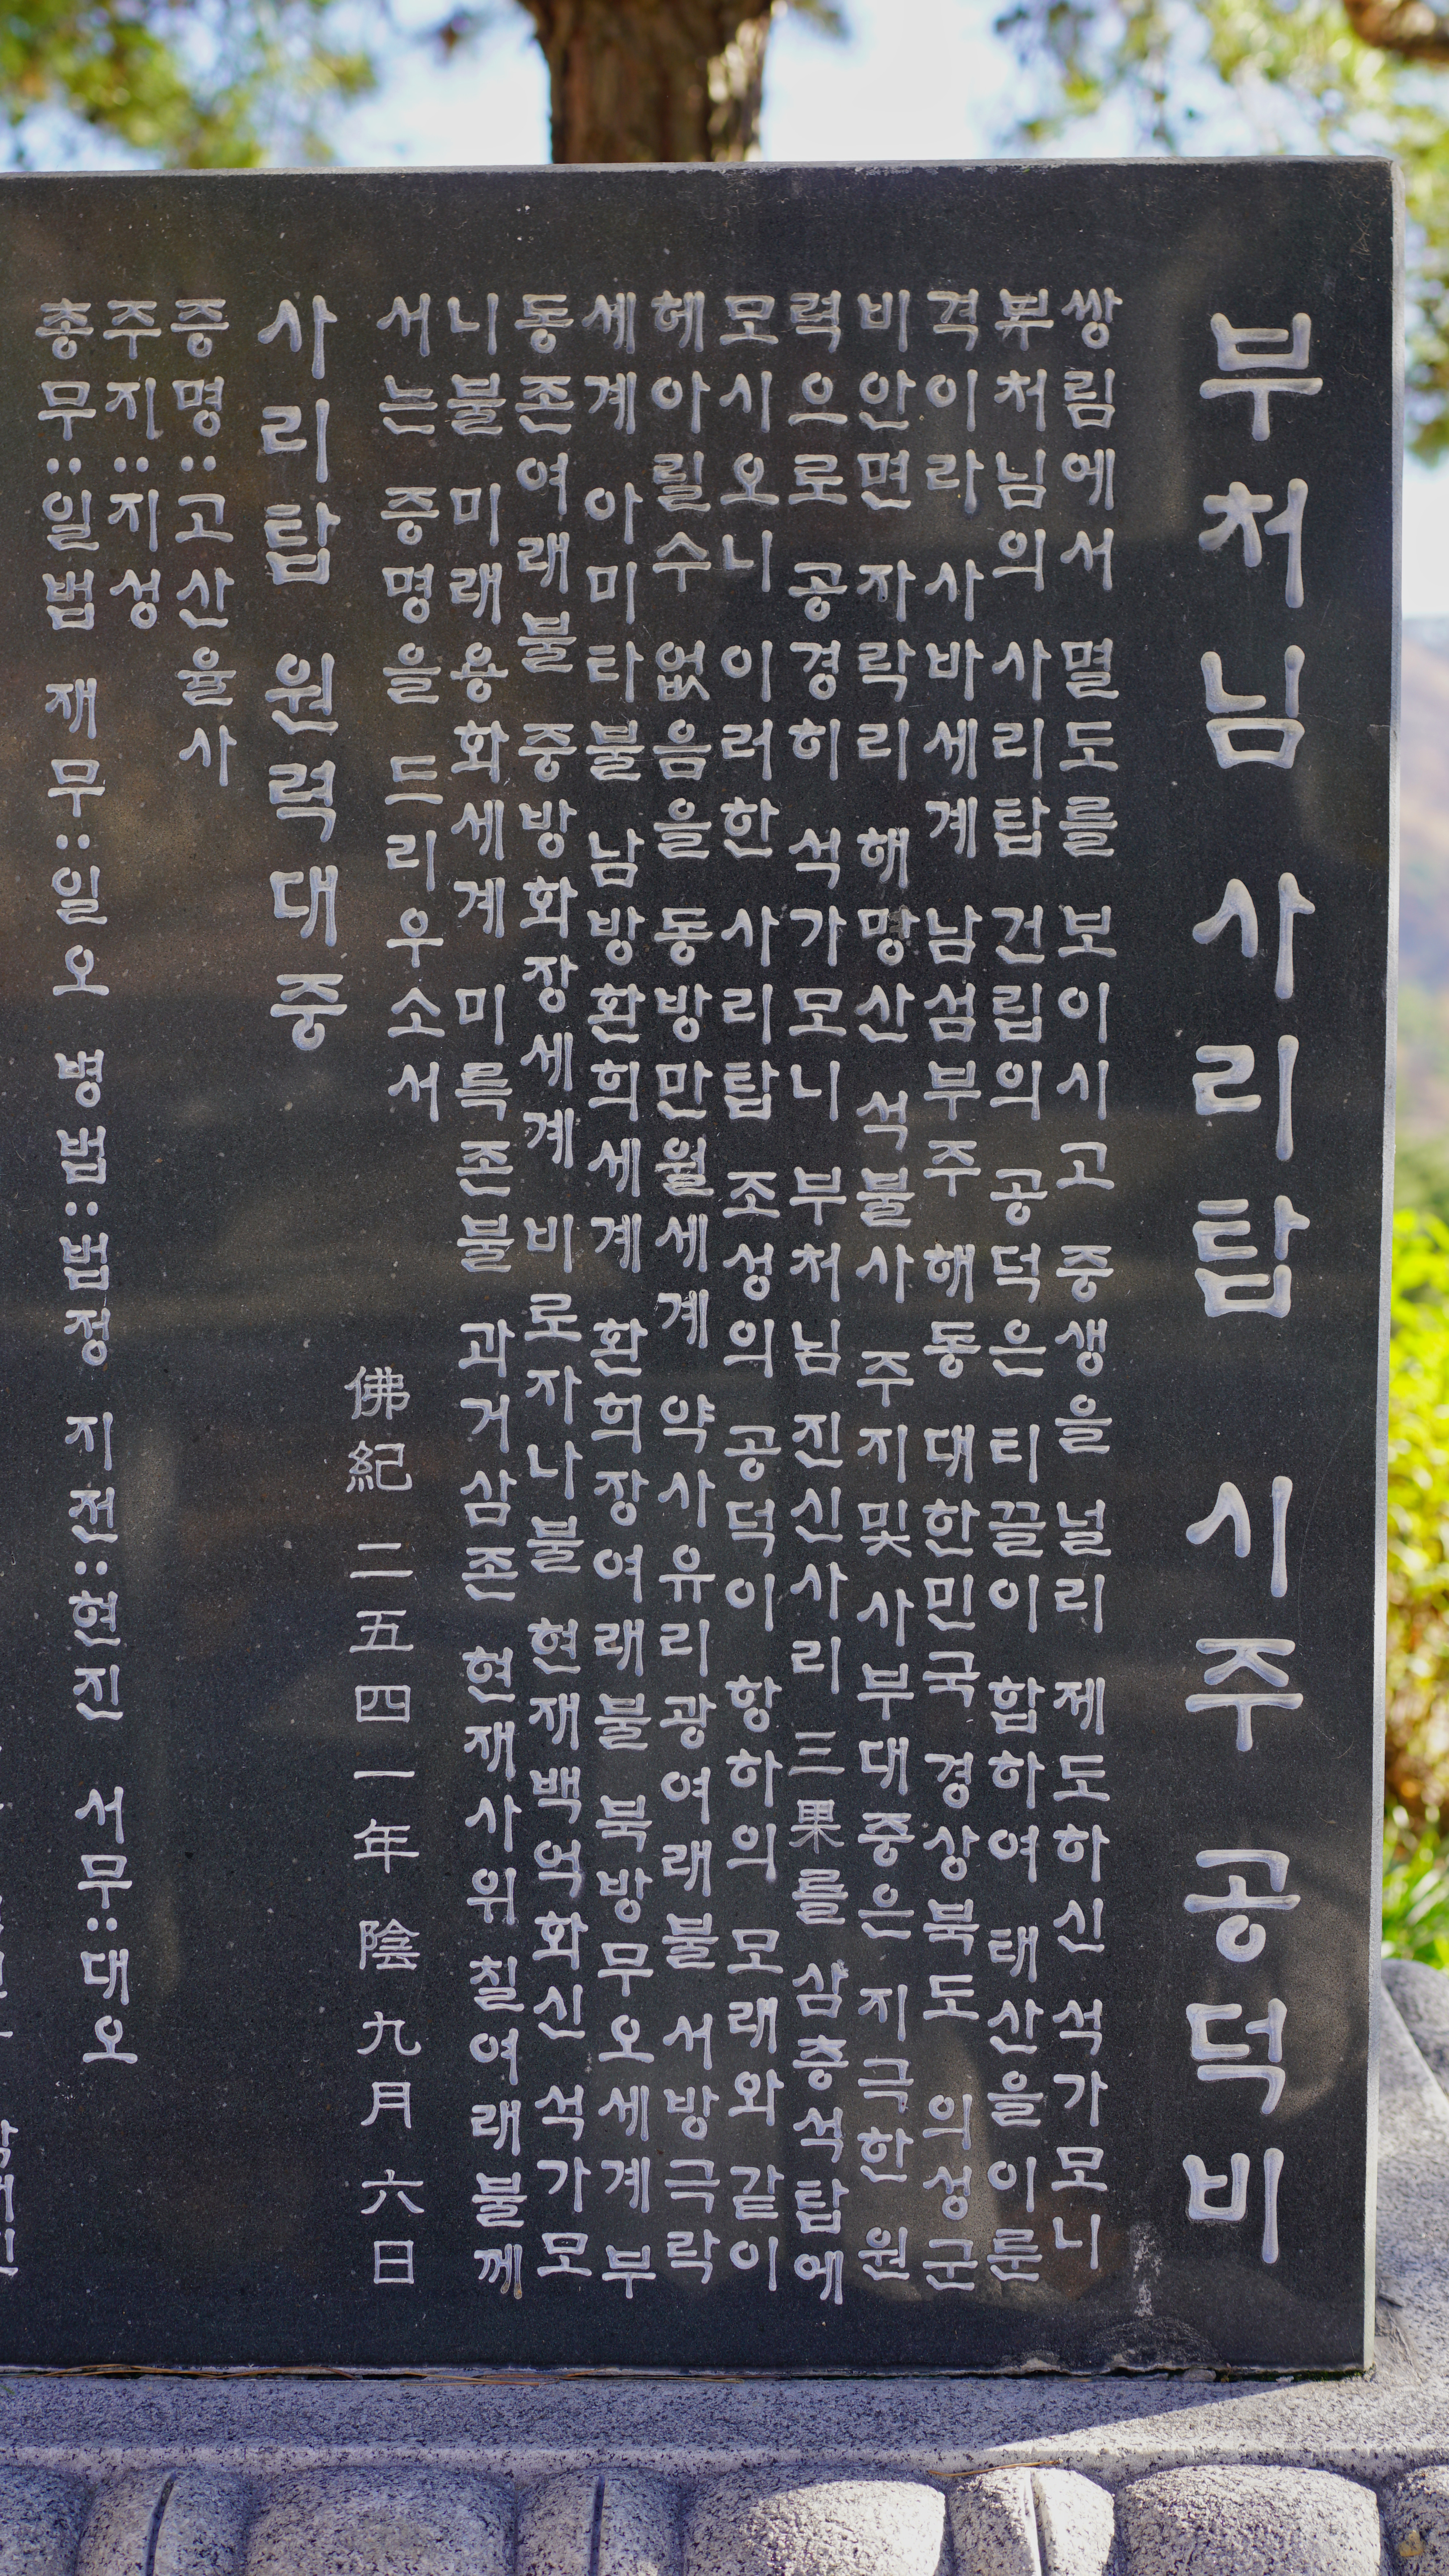 부처님 사리탑 시주공덕비
쌍림에서 멸도를 보이시고 중생을 널리 제도하신 석가모니
부처님의 사리탑 건립의 공덕은 티끌이 함하여 태산을이룬
격이라 사바세계 남섬부주 해동 대한민국 경상북도 의성군
비안면 자락리 해망산 석불사 주지및 사부대중은 지극한 원
력으로 공경히 석가모니 부처님 진신사리 三果를 삼층석탑에
모시오니 이러한 사리탑 조성의 공덕이 항하의 모래와 같이
헤아릴수 없음을 동방만월세계 약사유리광여래불 서방극락
세계 아미타불 남방환희세계 환희장여래불 북방무오세계부
동존여래불 중방화장세계 비로자나불 현재백억화신 석가모
니불 미래용화세계 미륵존불 과거삼존 현재사위 칠여래불께
서는 증명을 드리우소서
佛紀 二五四一年 陰九月 六日
사리탑 원력대중
증명:고산율사
주지:지성
총무:일법 재무:일오 병법:법정 지전:현진 서무:대오